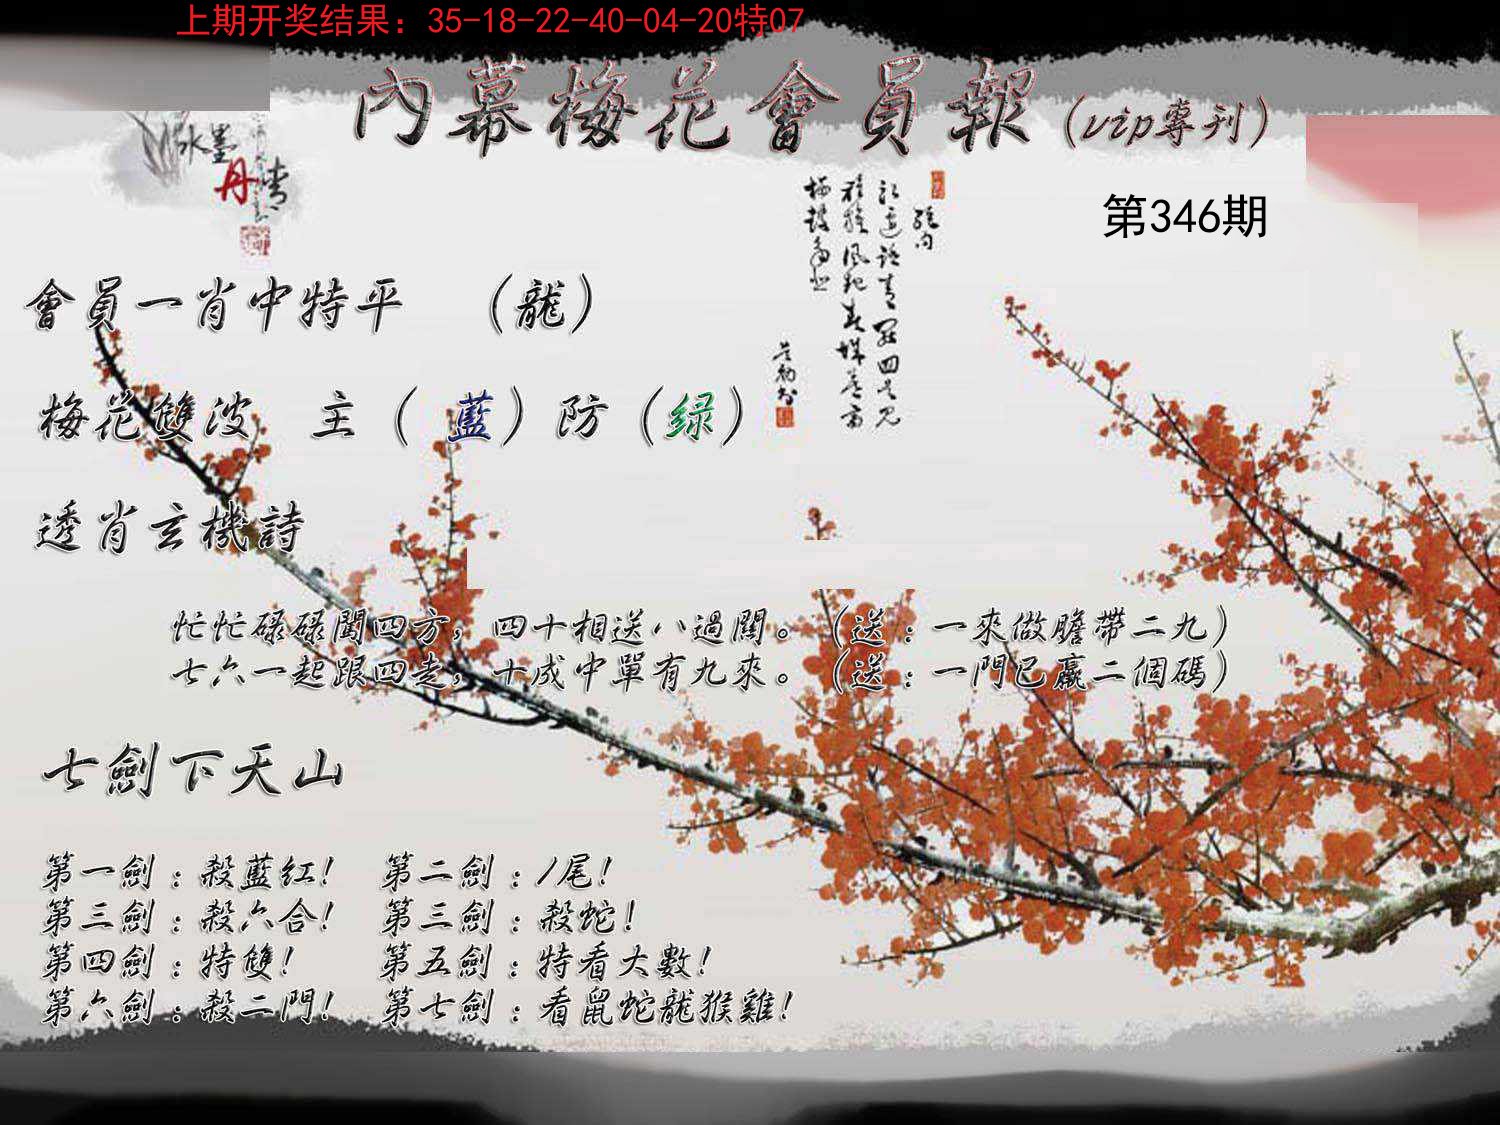 上期开奖结果：35-18-22-40-04-20特07
內幕梅花會員報（vip專刊）
水墨
丹
第346期
會員一肖中特平 （龍）
梅花雙波 主（ 藍）防（绿）
透肖玄機詩
忙忙碌碌闖四方，四十相送八過關。（送：一來做膽帶二九）
七六一起跟四走，十成中單有九來。（送：一門已贏二個碼）
七劍下天山
第一劍：殺藍红！ 第二劍：1尾！
第三劍：殺六合！ 第三劍：殺蛇！
第四劍：特雙！ 第五劍：特看大數！
第六劍：殺二門！ 第七劍：看鼠蛇龍猴雞！